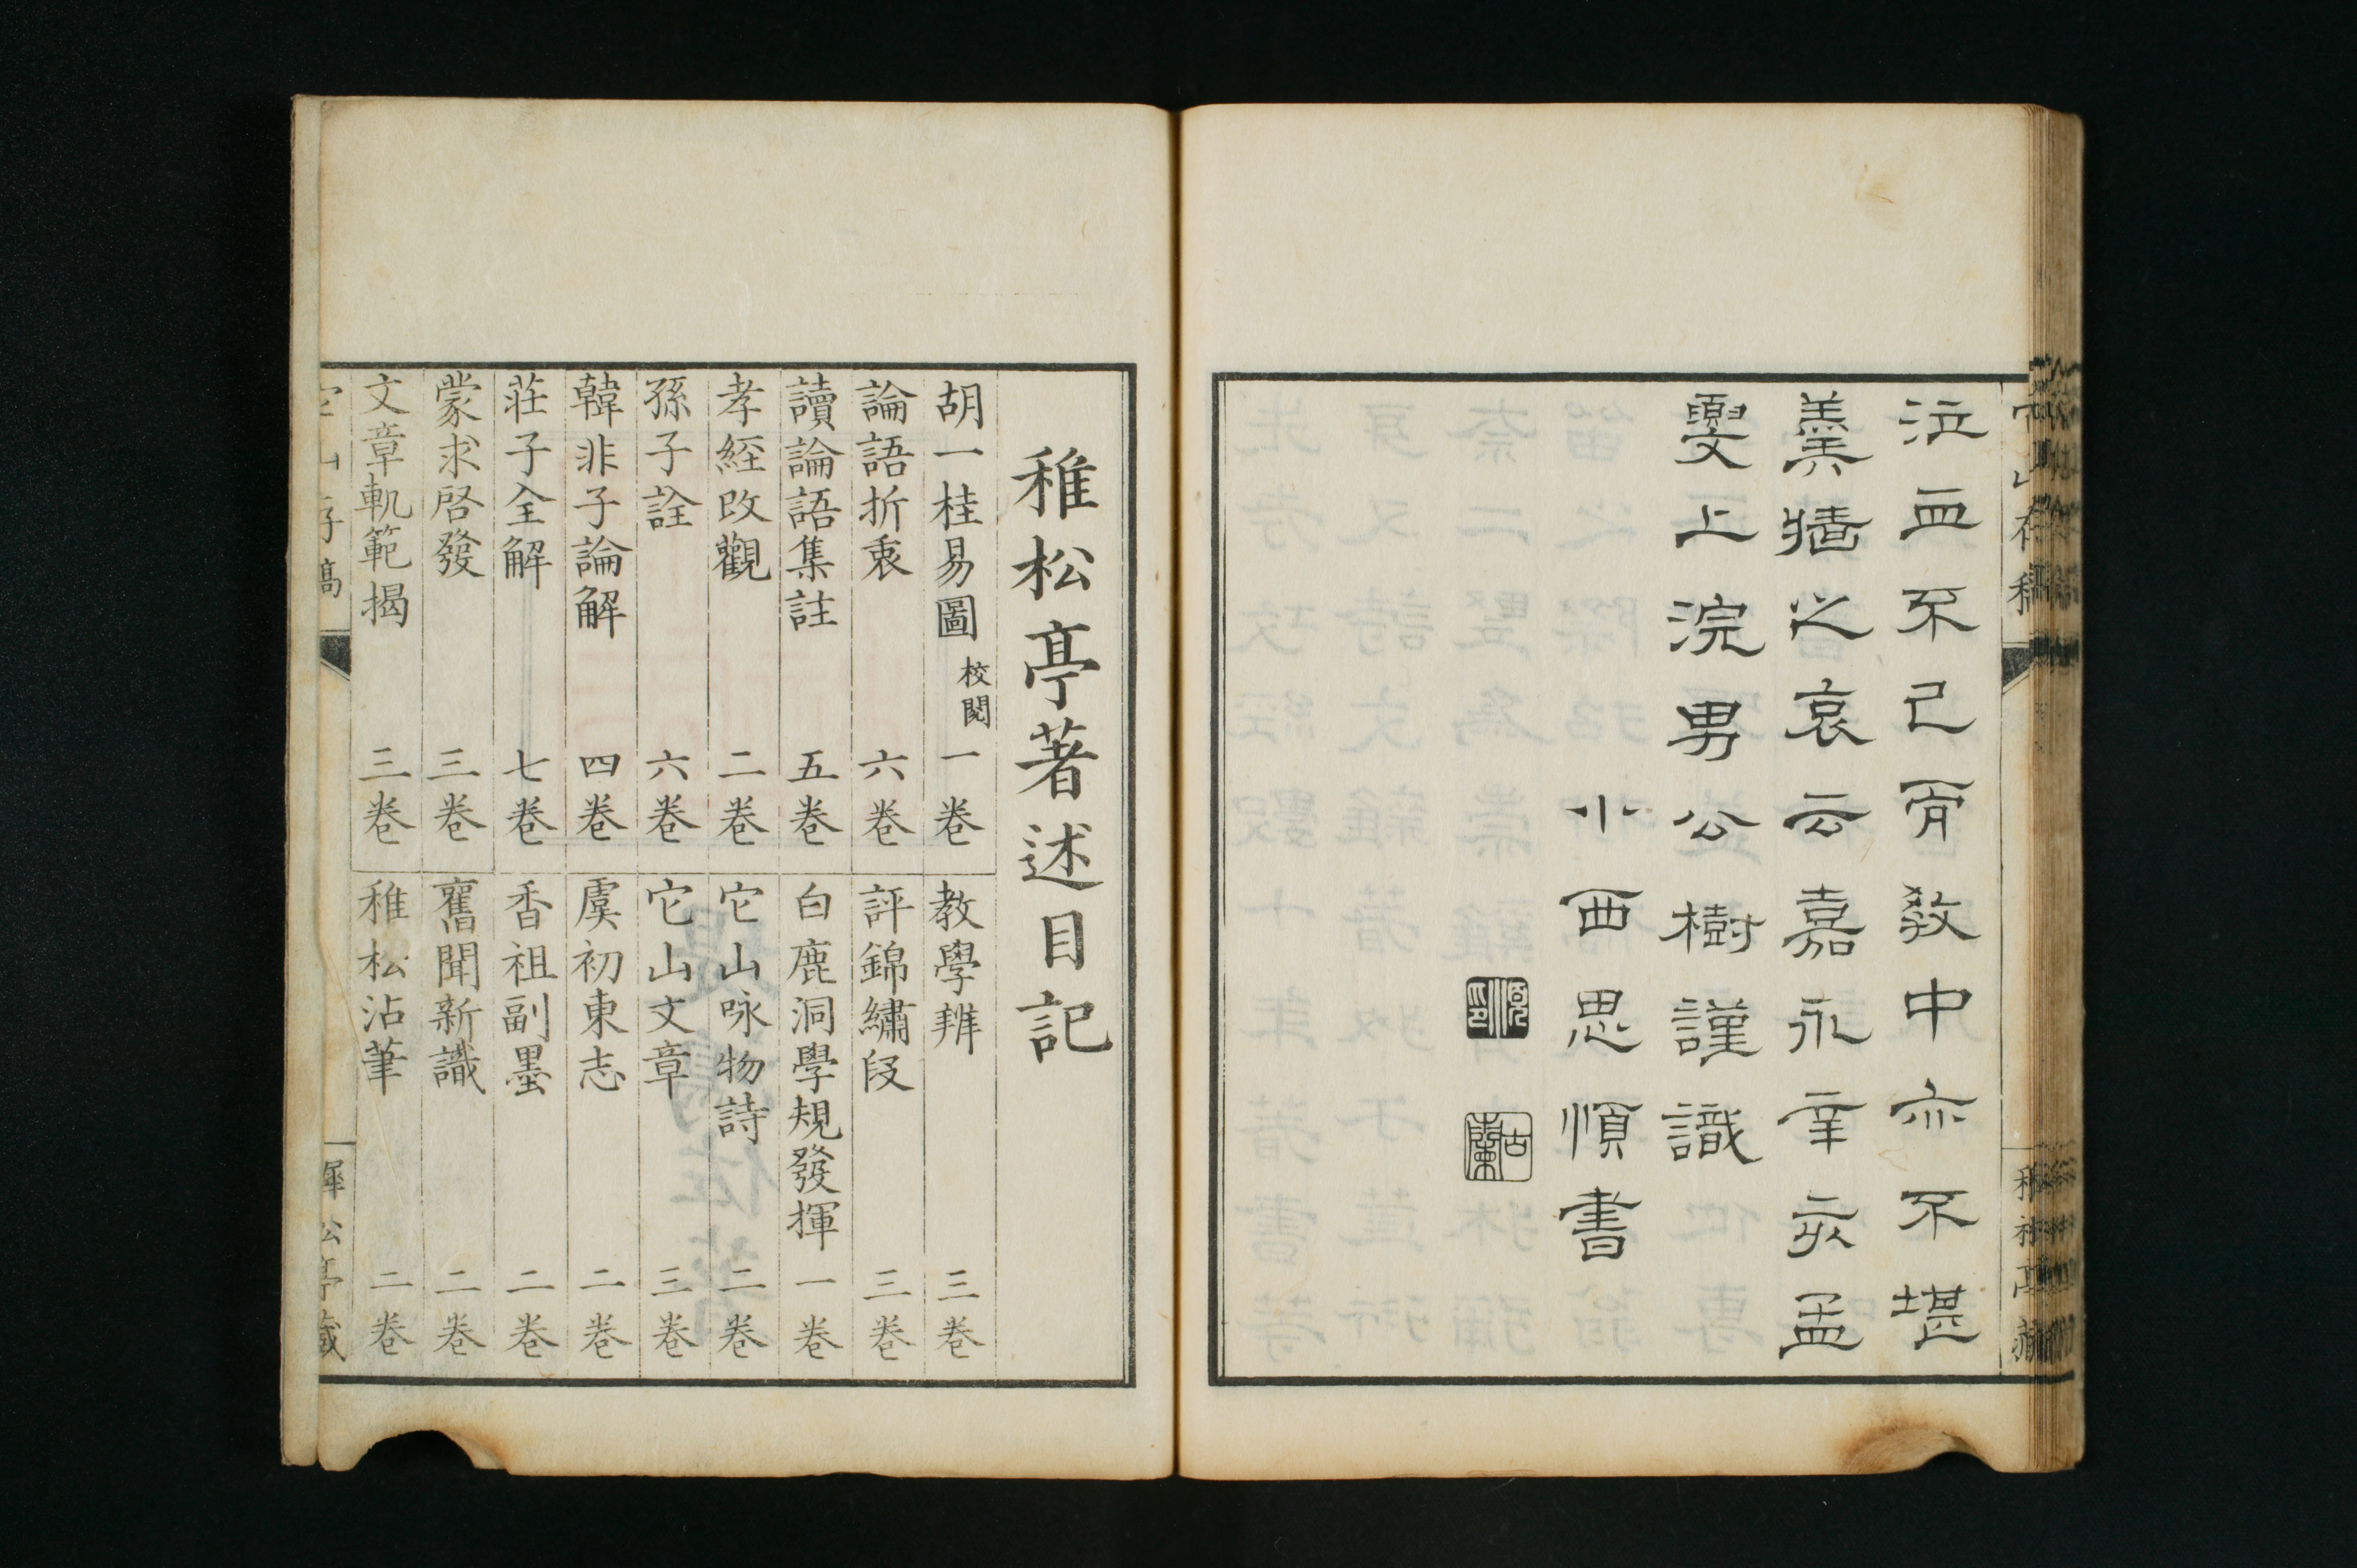 泣血不已胥教中亦不堪
羹牆之哀云嘉永辛亥孟
夏上浣男公樹謹識
小西思順書
稚松亭著述目記
胡一桂易圖 校閱 一卷
教學辨 三卷
論語折衷 六卷
評錦繡段 三卷
讀論語集註 五卷
白鹿洞學規發揮 一卷
孝經改觀 二卷
它山咏物詩 二卷
孫子詮 六卷
它山文章 三卷
韓非子論解 四卷
虞初東志 二卷
莊子全解 七卷
香祖副墨 二卷
蒙求啓發 三卷
舊聞新識 二卷
文章軌範揭 三卷
稚松沾筆 二卷